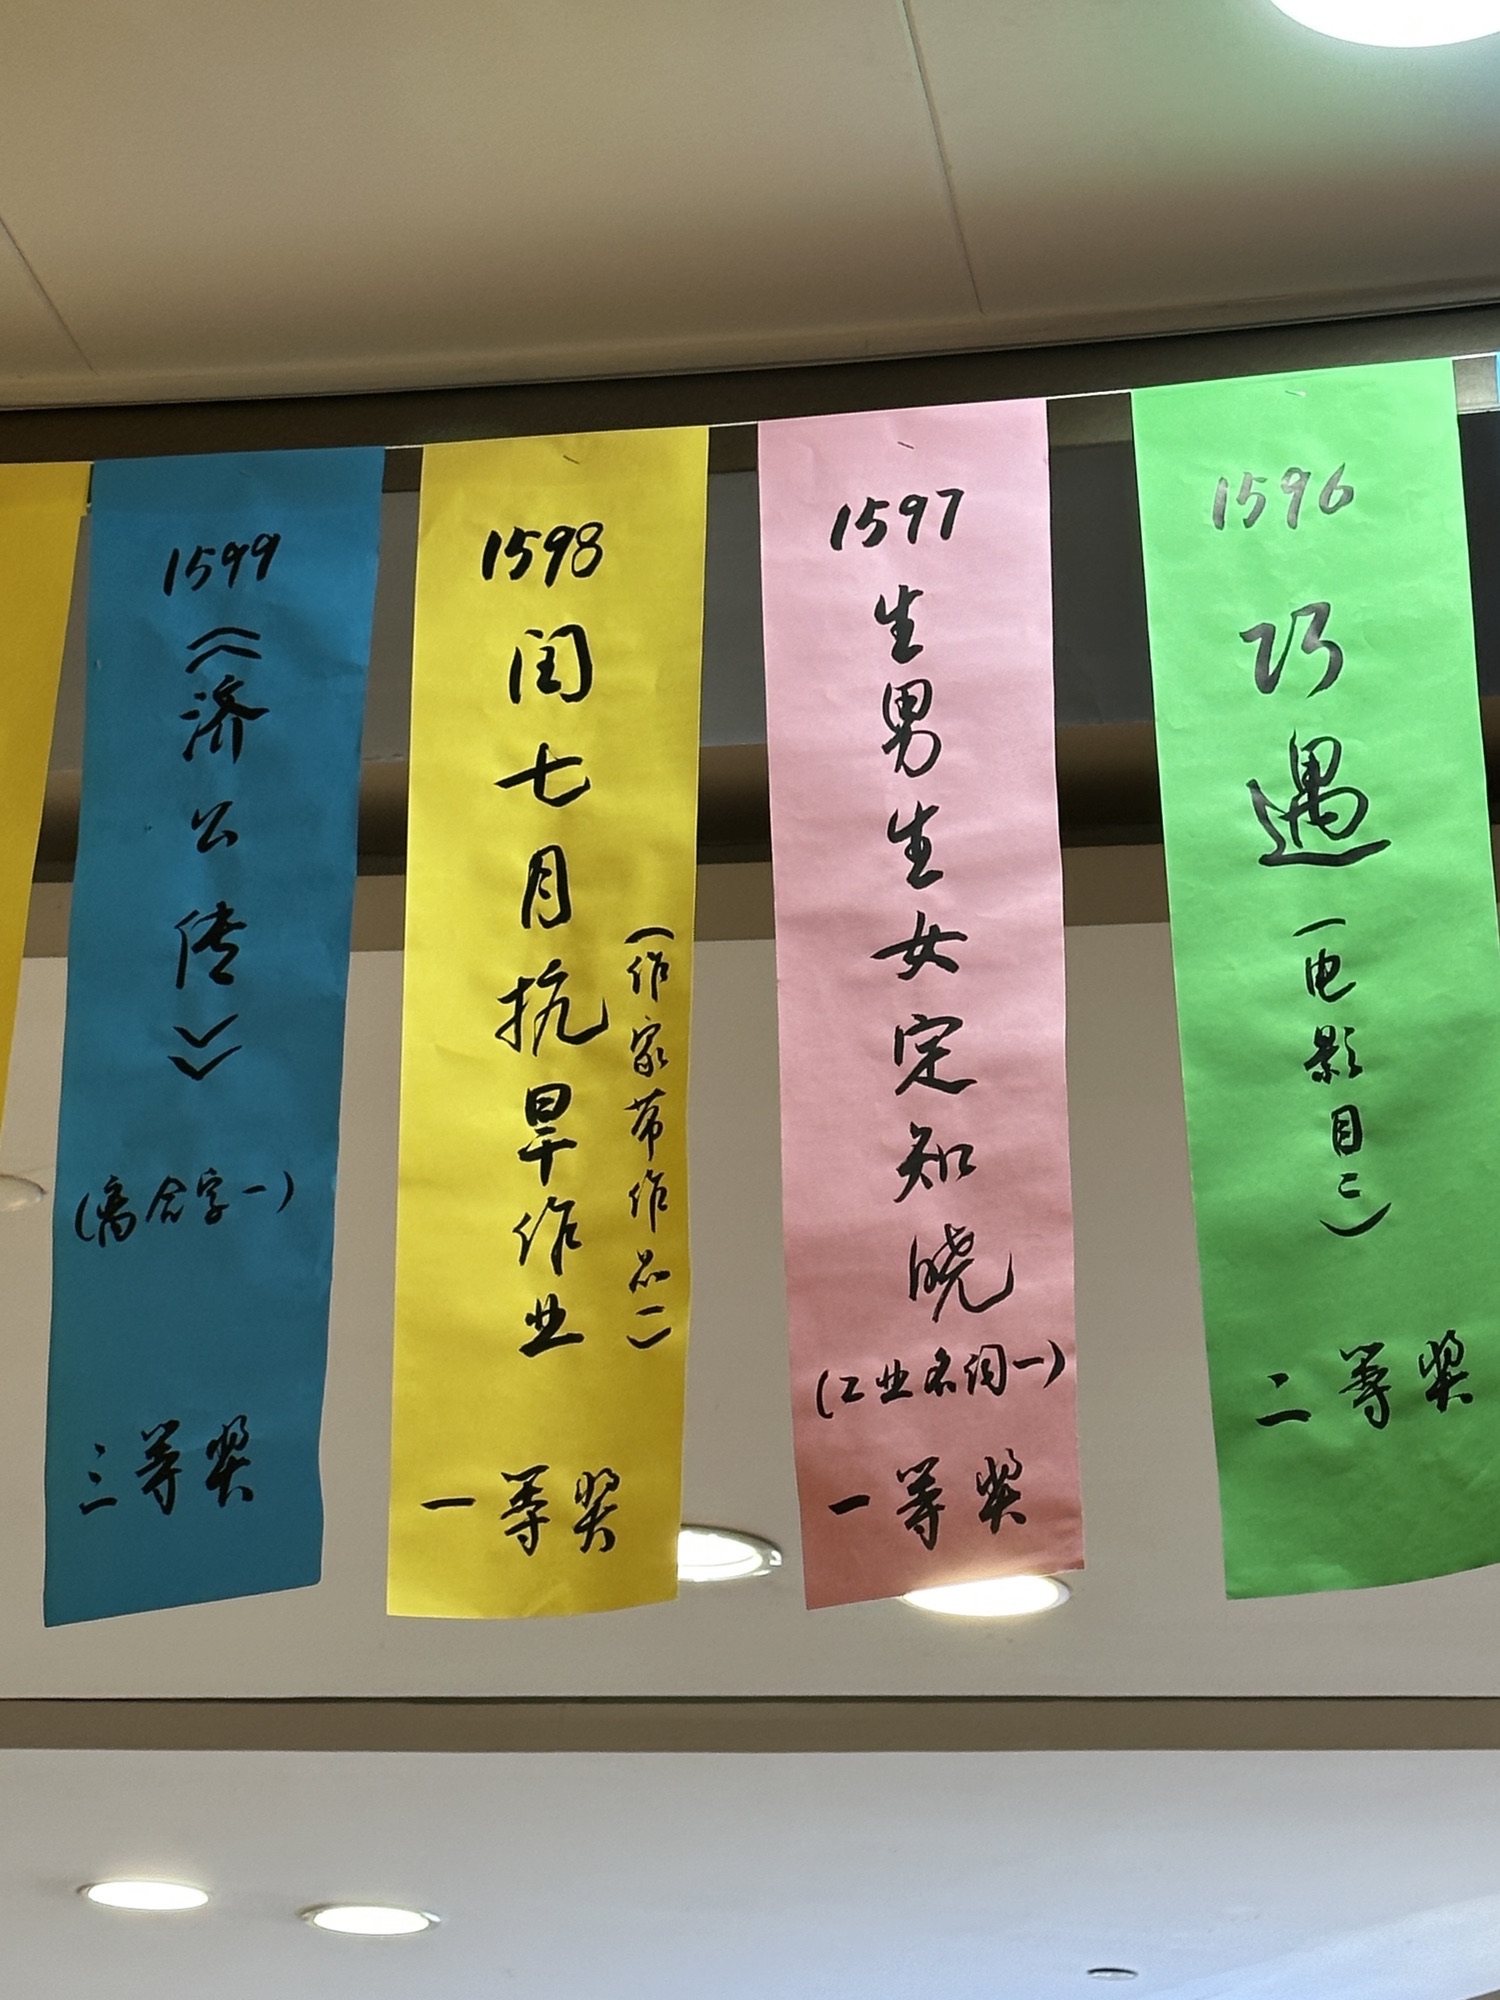 1599
《济公传》
(离合字一)
三等奖
1598
闰七月抗旱作业
(作家带作品一)
一等奖
1597
生男生女定知晓
(工业名词一)
一等奖
1596
巧遇
(电影目二)
二等奖